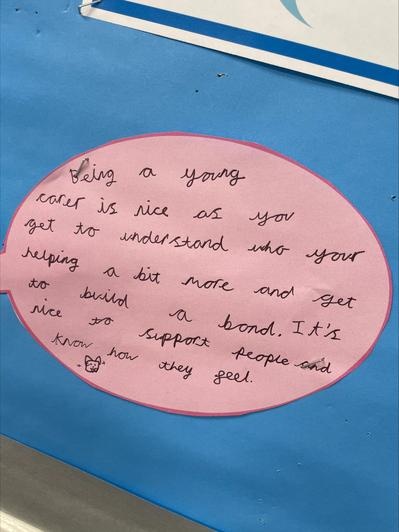 Being a young
carer is nice as you
get to understand who your
helping a bit more and get
to build a bond. It's
nice to support people and
know how they feel.